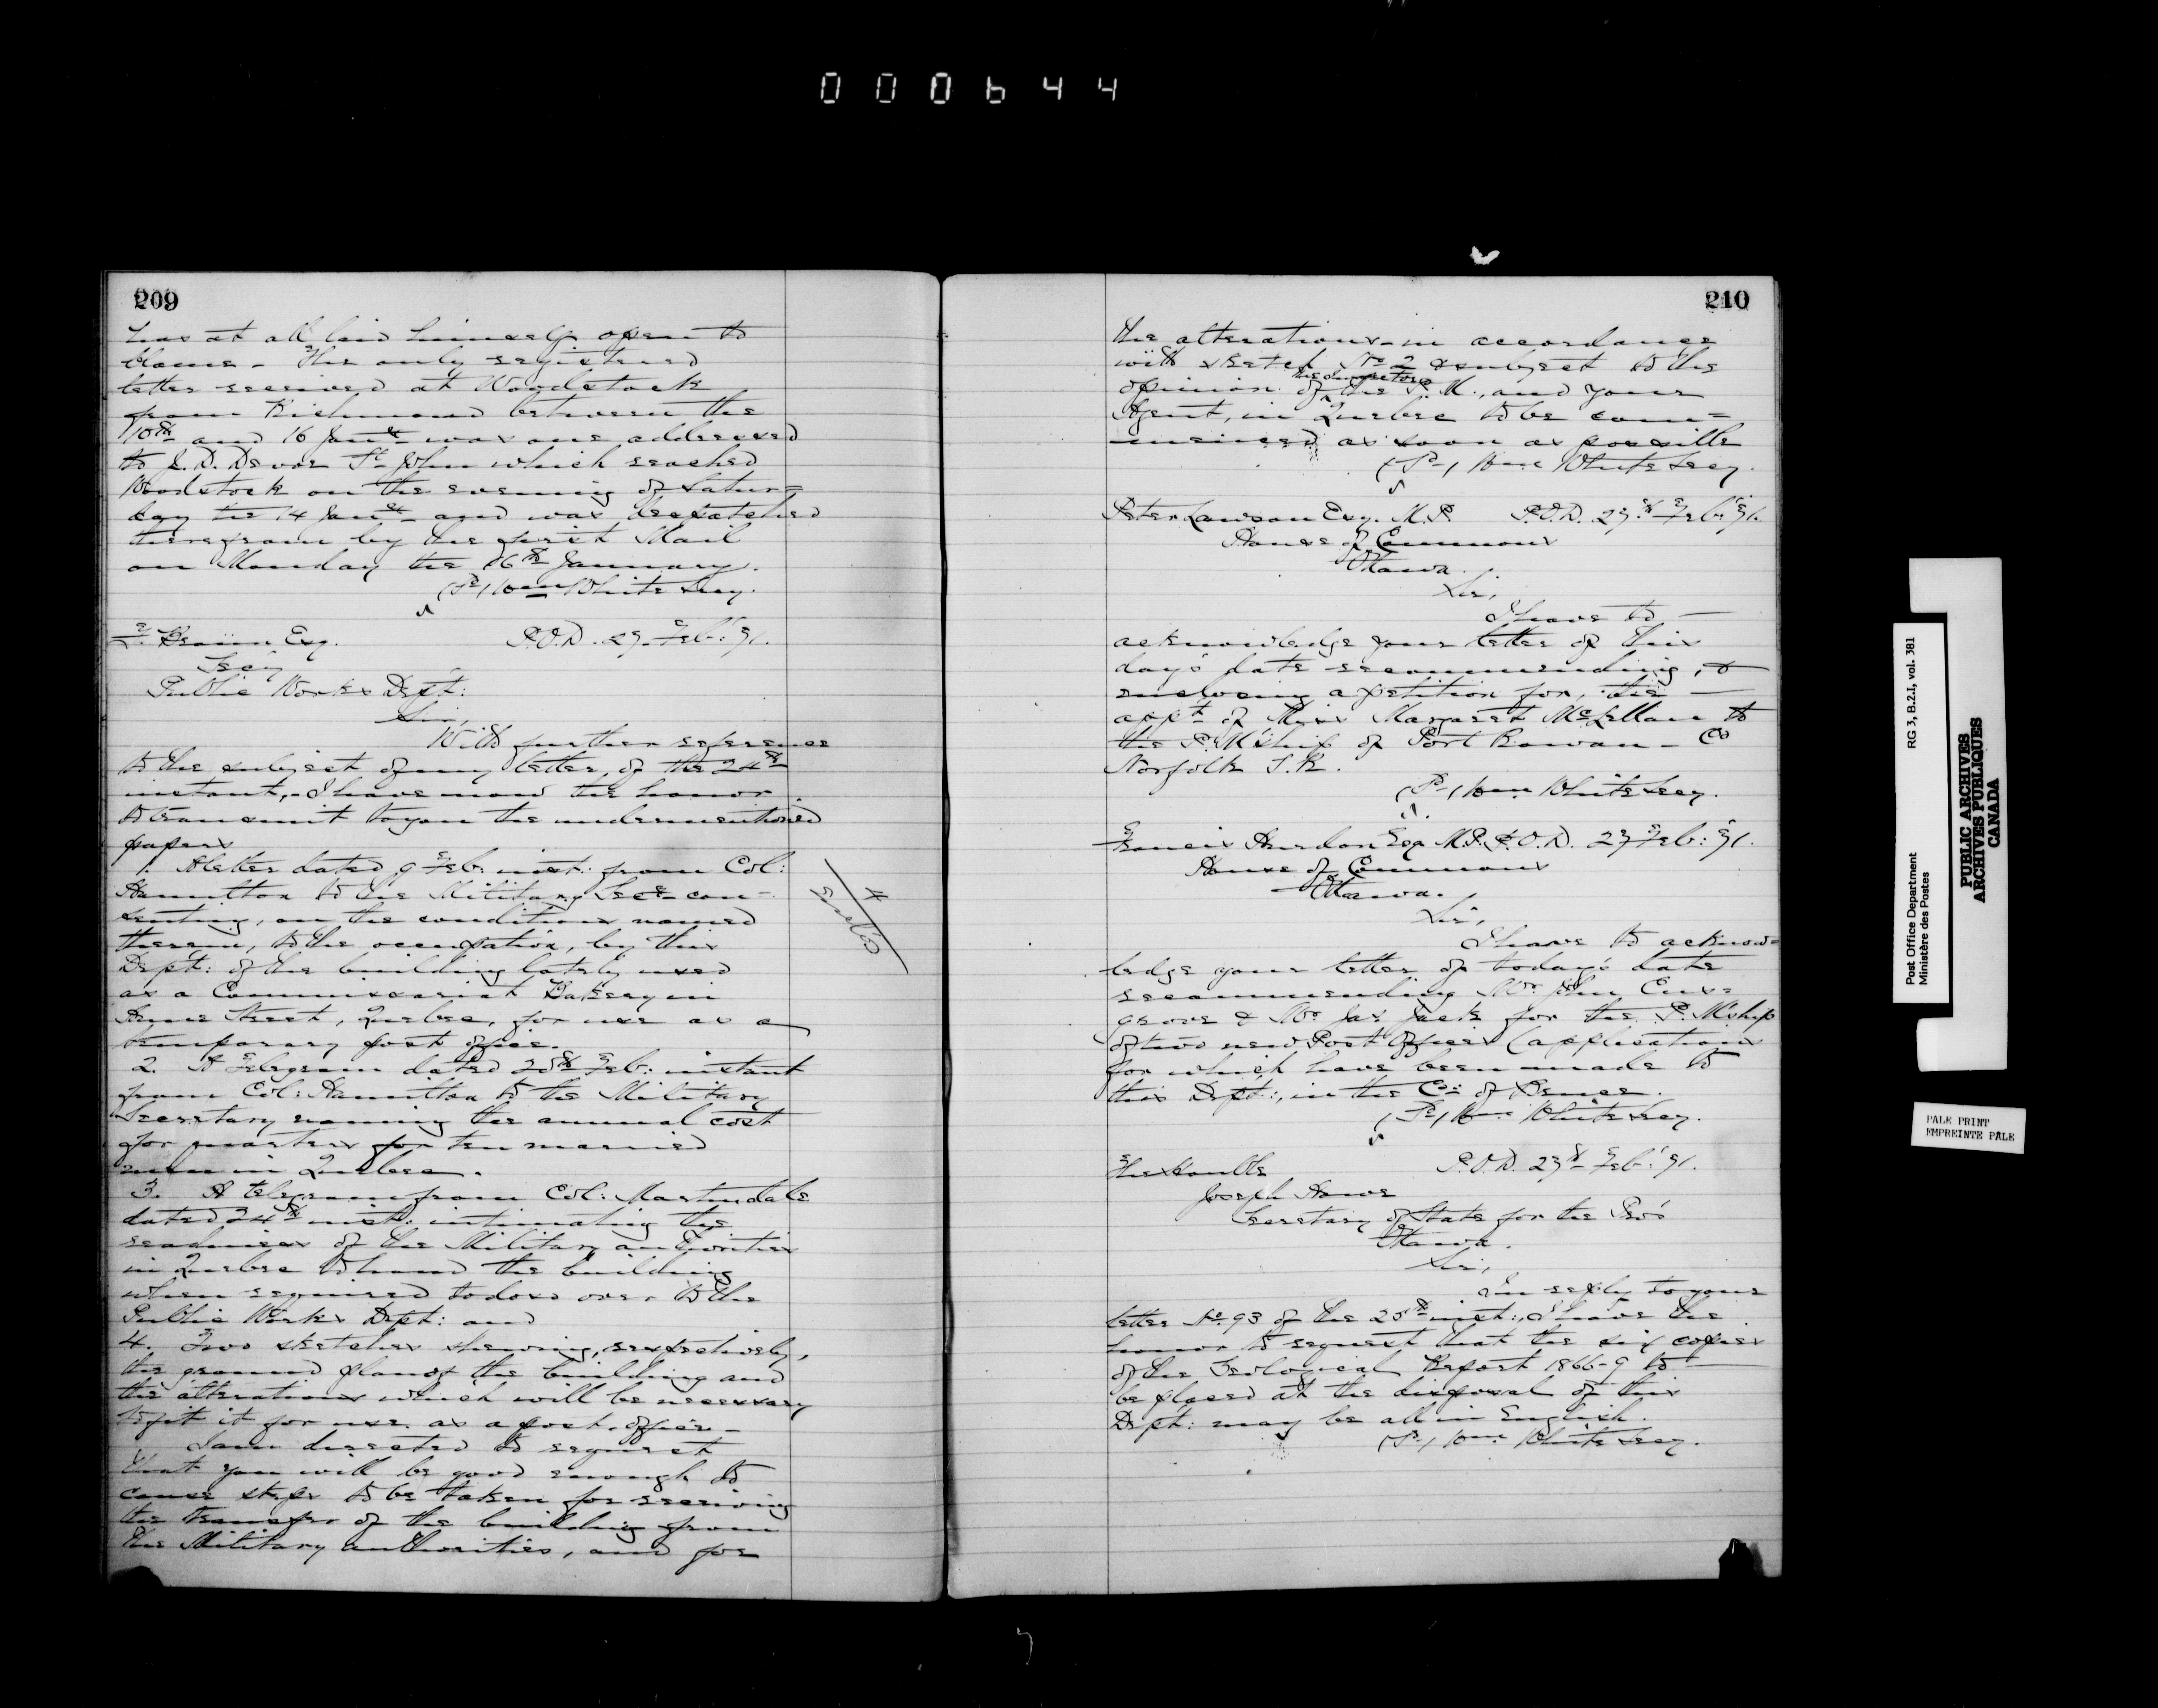 000644
209
has at all laid himself open to
blame - The only registered
letter received at Woodstock
from Richmond between the
10th and 16 Jany was one addressed
to J. D. Devoe St John which reached
Woodstock on the evening of Satur=
day the 14 Jany and was despatched
therefrom by the first Mail
on Monday the 16th January.
(Sd) Wm White Secy.
F. Braun Esq. P.O.D. 27 Feb: 71.
Secy
Public Works Dept:
Sir,
With further reference
to the subject of my letter of the 24th
instant, - I have now the honor
to transmit to you the undermentioned
papers
1. A letter dated 9 Feb. inst: from Col:
Hamilton to the Military Secy con-
senting, on the conditions named
therein, to the occupation, by this
Dept: of the building lately used
as a Commissariat Bakery in
Anne Street, Quebec, for use as a
temporary post office.
2. A telegram dated 25th Feb: instant
from Col: Hamilton to the Military
Secretary naming the annual cost
for quarters for ten married
men in Quebec.
3. A telegram from Col: Martindale
dated 24th inst: intimating the
readiness of the Military authorities
in Quebec to hand the building
when required to do so over to the
Public Works Dept: and
4. Two sketches shewing, respectively,
the ground plan of the building and
the alterations which will be necessary
to fit it for use as a post office -
I am directed to request
that you will be good enough to
cause steps to be taken for receiving
the transfer of the building from
the Military authorities, and for
4
210
the alterations - in accordance
with sketch No 2 & subject to the
opinion of the Inspector, the P.M., and your
Agent, in Quebec to be com=
menced as soon as possible
(Sd) Wm White Secy.
Peter Lawson Esq. M.P. P.O.D. 27th Feb: 71.
House of Commons
Ottawa.
Sir,
I have to
acknowledge your letter of this
day's date recommending, &
enclosing a petition for, the
appt of Miss Margaret McLellan to
the P.M'ship of Port Rowan - Co
Norfolk S.R.
(Sd) Wm White Secy.
Francis Hurdon Esq M.P. P.O.D. 27 Feb: 71.
House of Commons
Ottawa.
Sir,
I have to acknow=
ledge your letter of today's date
recommending Mr John
& Mr Jas Jack for the P.M'ship
of two new Post Offices (applications
for which have been made to
this Dept:, in the Co: of Bruce.
(Sd) Wm White Secy.
The Honble P.O.D. 27th Feb: 71.
Joseph Howe
Secretary of State for the Pro's
Ottawa.
Sir,
In reply to your
letter No 93 of the 25th inst:, I have the
honor to request that the six copies
of the Geological Report 1866-9 to
be placed at the disposal of this
Dept: may be all in English.
(Sd) Wm White Secy.
Post Office Department RG 3, B.2.I, vol. 381
Ministère des Postes
PUBLIC ARCHIVES
ARCHIVES PUBLIQUES
CANADA
PALE PRINT
EMPREINTE PALE